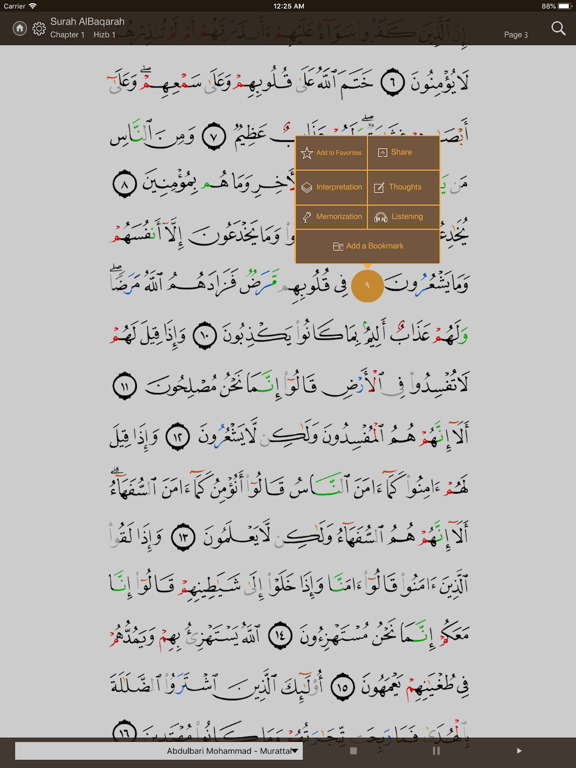 Carrier 12:25 AM 88%
Surah AlBaqarah
Chapter 1 Hizb 1 Page 3
إِنَّ ٱلَّذِينَ كَفَرُوا۟ سَوَآءٌ عَلَيْهِمْ ءَأَنذَرْتَهُمْ أَمْ لَمْ تُنذِرْهُمْ
لَا يُؤْمِنُونَ ٦ خَتَمَ ٱللَّهُ عَلَىٰ قُلُوبِهِمْ وَعَلَىٰ سَمْعِهِمْ ۖ وَعَلَىٰٓ
عَظِيمٌ ٧ وَمِنَ ٱلنَّاسِ
مَن وَمَا هُم بِمُؤْمِنِينَ ٨
وَمَا يَخْدَعُونَ إِلَّآ أَنفُسَهُمْ
وَمَا يَشْعُرُونَ ٩ فِى قُلُوبِهِم مَّرَضٌ فَزَادَهُمُ ٱللَّهُ مَرَضًا ۖ
وَلَهُمْ عَذَابٌ أَلِيمٌۢ بِمَا كَانُوا۟ يَكْذِبُونَ ١٠ وَإِذَا قِيلَ لَهُمْ
لَا تُفْسِدُوا۟ فِى ٱلْأَرْضِ قَالُوٓا۟ إِنَّمَا نَحْنُ مُصْلِحُونَ ١١
أَلَآ إِنَّهُمْ هُمُ ٱلْمُفْسِدُونَ وَلَـٰكِن لَّا يَشْعُرُونَ ١٢ وَإِذَا قِيلَ
لَهُمْ ءَامِنُوا۟ كَمَآ ءَامَنَ ٱلنَّاسُ قَالُوٓا۟ أَنُؤْمِنُ كَمَآ ءَامَنَ ٱلسُّفَهَآءُ ۗ
أَلَآ إِنَّهُمْ هُمُ ٱلسُّفَهَآءُ وَلَـٰكِن لَّا يَعْلَمُونَ ١٣ وَإِذَا لَقُوا۟
ٱلَّذِينَ ءَامَنُوا۟ قَالُوٓا۟ ءَامَنَّا وَإِذَا خَلَوْا۟ إِلَىٰ شَيَـٰطِينِهِمْ قَالُوٓا۟ إِنَّا
مَعَكُمْ إِنَّمَا نَحْنُ مُسْتَهْزِءُونَ ١٤ ٱللَّهُ يَسْتَهْزِئُ بِهِمْ وَيَمُدُّهُمْ
فِى طُغْيَـٰنِهِمْ يَعْمَهُونَ ١٥ أُو۟لَـٰٓئِكَ ٱلَّذِينَ ٱشْتَرَوُا۟ ٱلضَّلَـٰلَةَ
بِٱلْهُدَىٰ فَمَا رَبِحَت تِّجَـٰرَتُهُمْ وَمَا كَانُوا۟ مُهْتَدِينَ ١٦
Add to Favorites Share
Interpretation Thoughts
Memorization Listening
Add a Bookmark
Abdulbari Mohammad - Murattal